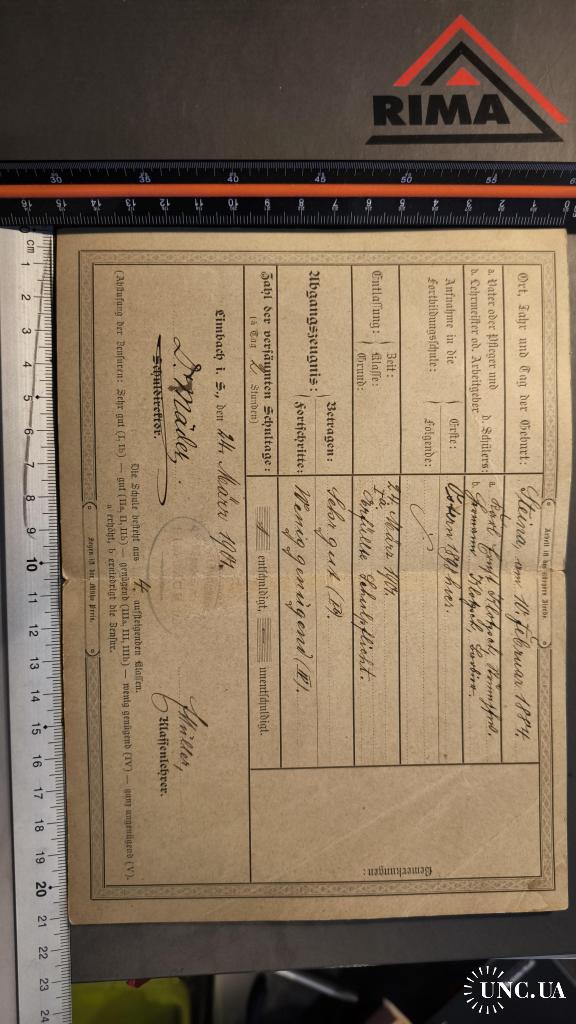 RIMA
Ort, Jahr und Tag der Geburt:
Steina, am 10. Februar 1884.
a. Vater oder Pfleger und
b. Lehrmeister od. Arbeitgeber
d. Schülers:
a. Karl Ernst
b. Hermann
Aufnahme in die
Fortbildungsschule:
Erste:
Folgende:
Ostern 1897 hier.
Entlassung:
Zeit:
Klasse:
Grund:
24. März 1901.
Ia
Erfüllte Schulpflicht.
Abgangszeugnis:
Betragen:
Fortschritte:
Sehr gut (I).
Wenig genügend (IV).
Zahl der versäumten Schultage:
(à Tag 2 Stunden)
entschuldigt,
unentschuldigt.
Bemerkungen:
Limbach i. S., den 24. März 1901.
Schuldirektor.
Müller,
Klassenlehrer.
Die Schule besteht aus 4 aufsteigenden Klassen.
(Abstufung der Zensuren: Sehr gut (I, Ib) — gut (IIa, II, IIb) — genügend (IIIa, III, IIIb) — wenig genügend (IV) — ganz ungenügend (V).
a erhöht, b erniedrigt die Zensur.
Segen ist der Mühe Preis.
UNC.UA